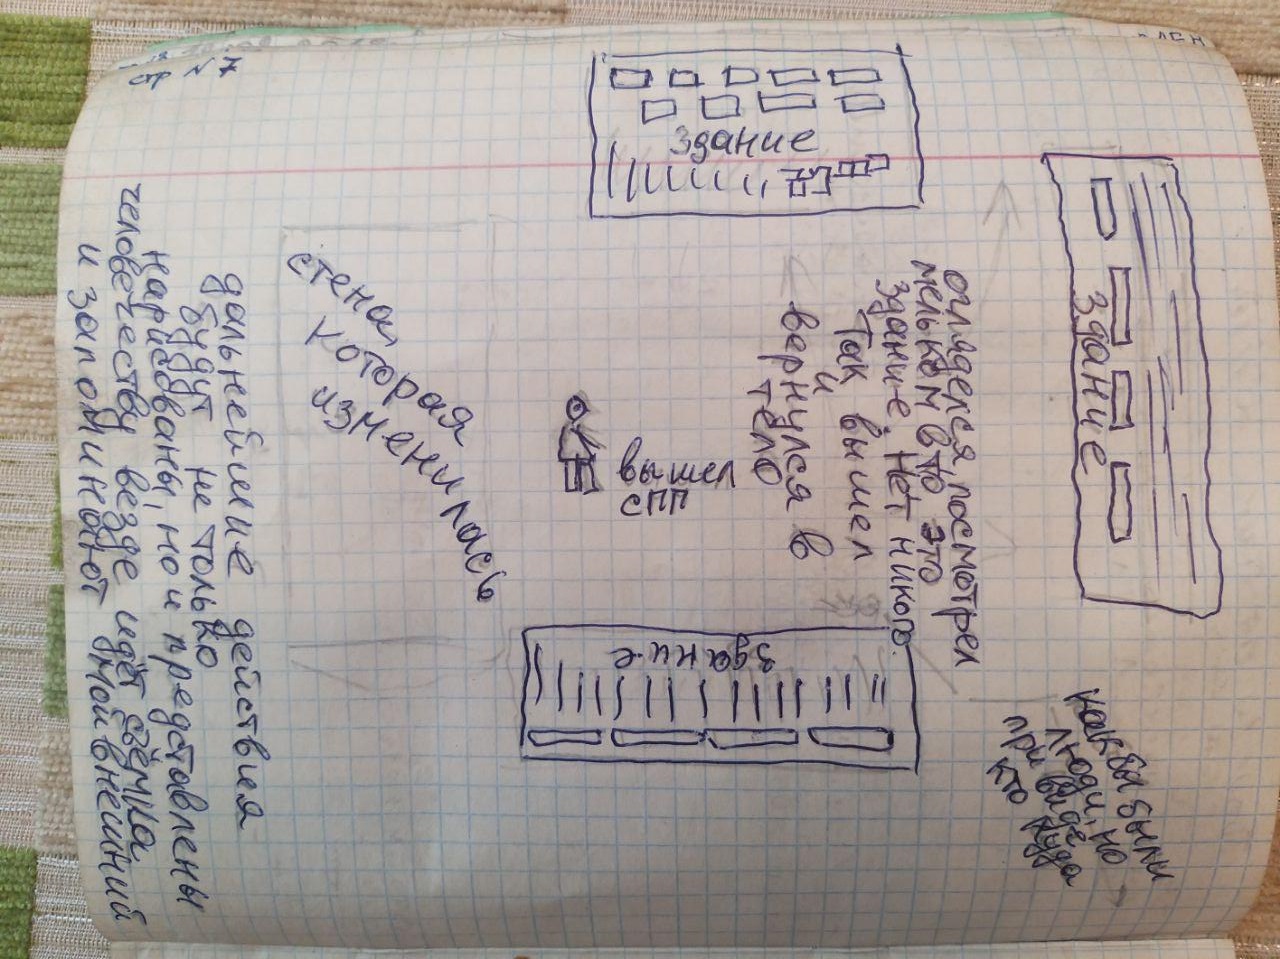 стр N 7
здание
здание
огляделся, посмотрел
мельком в то это
здание. Нет никого.
Так вышел
и
вернулся в
тело
вышел
СПП
стена,
которая
изменилась
здание
как бы были
люди, но
при виде
кто куда
дальнейшие действия
будут не только
нарисованы, но и представлены
человечеству везде идёт съёмка
и запоминают мой внешний